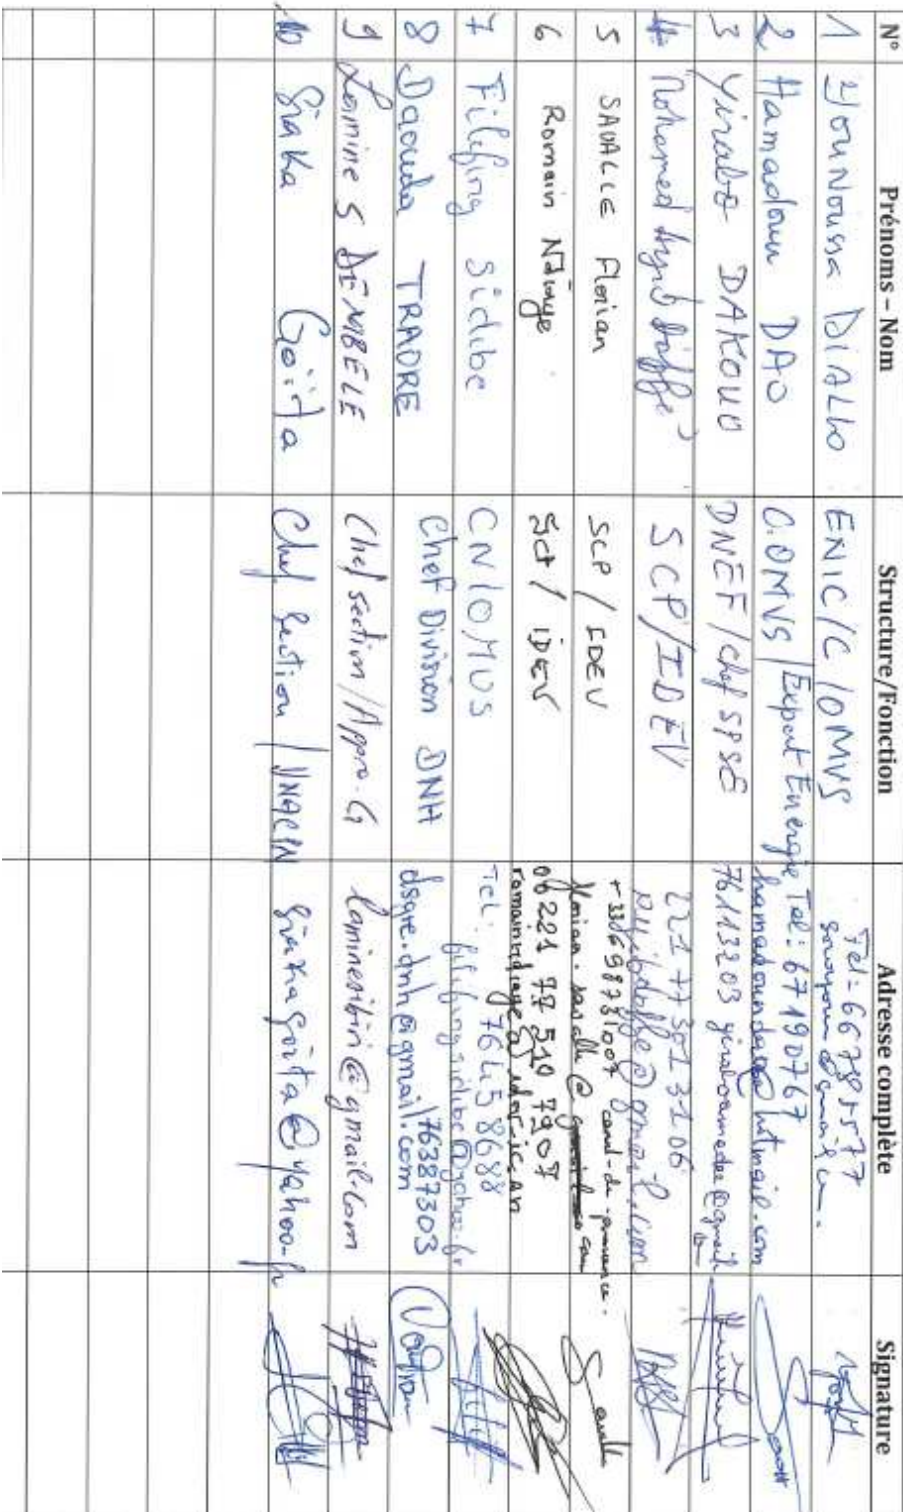 N° Prénoms – Nom Structure/Fonction Adresse complète Signature
1 Younoussa DIALLO ENIC/C/OMVS Tel: 66785577
2 Hamadoun DAO O.OMVS/Expert Energie Tel: 67190767
hamadoundao@hotmail.com
3 Yirabo DAKOUO DNEF/Chef SPSE 76113203
4 Mohamed Ayib Daffé SCP/IDEV 221 77 301 31 06
ayibdaffe@gmail.com
5 SAVALLE Florian SCP/IDEV +336698731007 canal-de-provence.
florian.savalle@ com
6 Romain Ndiaye SCP/IDEV 00 221 77 510 7907
7 Filifing Sidibe CN/OMVS Tel: 76458688
filifingsidibe@yahoo.fr
8 Daouda TRAORE Chef Division DNH 76387303
dsgre.dnh@gmail.com
9 Lamine S DEMBELE Chef section/Appro-G laminesibiri@gmail.com
10 Siaka Goïta Chef Section/DNACPN siakagoita@yahoo.fr